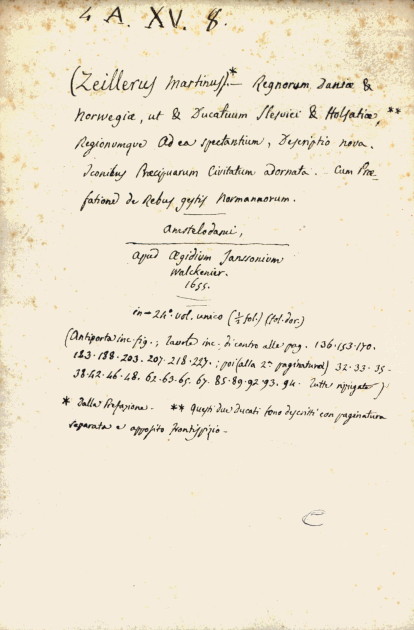 4 A. XV. 8.
(Zeillerus Martinus).* — Regnorum Daniæ &
Norwegiæ, ut & Ducatuum Slesvici & Holsatiæ, **
Regionumque ad ea spectantium, Descriptio nova.
Iconibus Præcipuarum Civitatum adornata. — Cum Præ=
fatione de Rebus gestis Normannorum.
Amstelodami,
apud Ægidium Janssonium
Walckenier.
1655.
in-24.° vol. unico (fol. dor.)
(Antiporta inc. fig.; tavole inc. di contro alle pag. 136. 153. 170.
183. 188. 203. 207. 218. 227.; poi (alla 2ª paginatura) 32. 33. 35-
38. 42. 46. 48. 62. 63. 65. 67. 85. 89. 92. 93. 94. tutte ripiegate)
* Dalla Prefazione. ** Questi due Ducati sono descritti con paginatura
separata e apposito frontispizio —